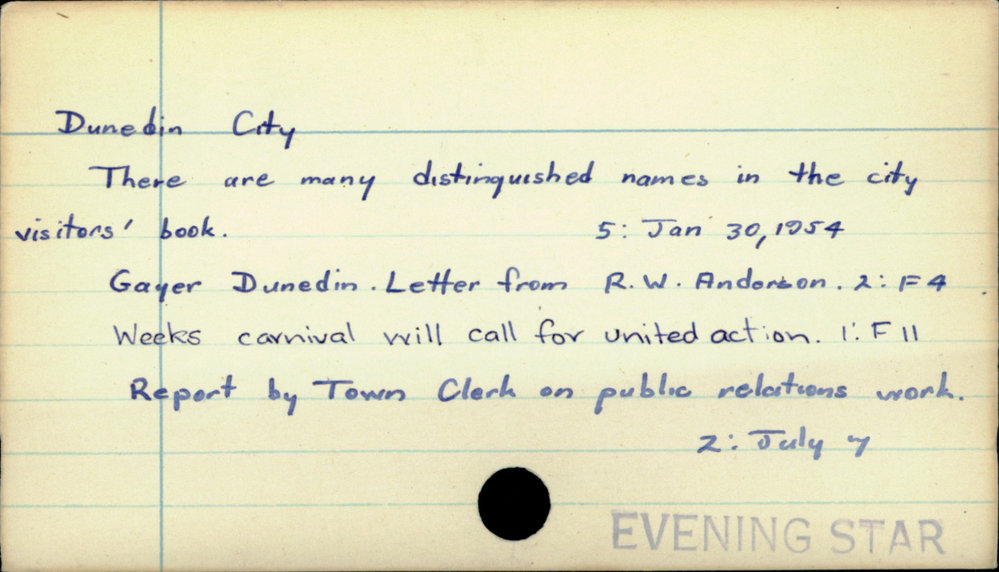 Dunedin City
There are many distinguished names in the city
visitors' book. 5: Jan 30, 1954
Gayer Dunedin. Letter from R. W. Anderson. 2: F 4
Weeks carnival will call for united action. 1: F 11
Report by Town Clerk on public relations work.
2: July 7
EVENING STAR